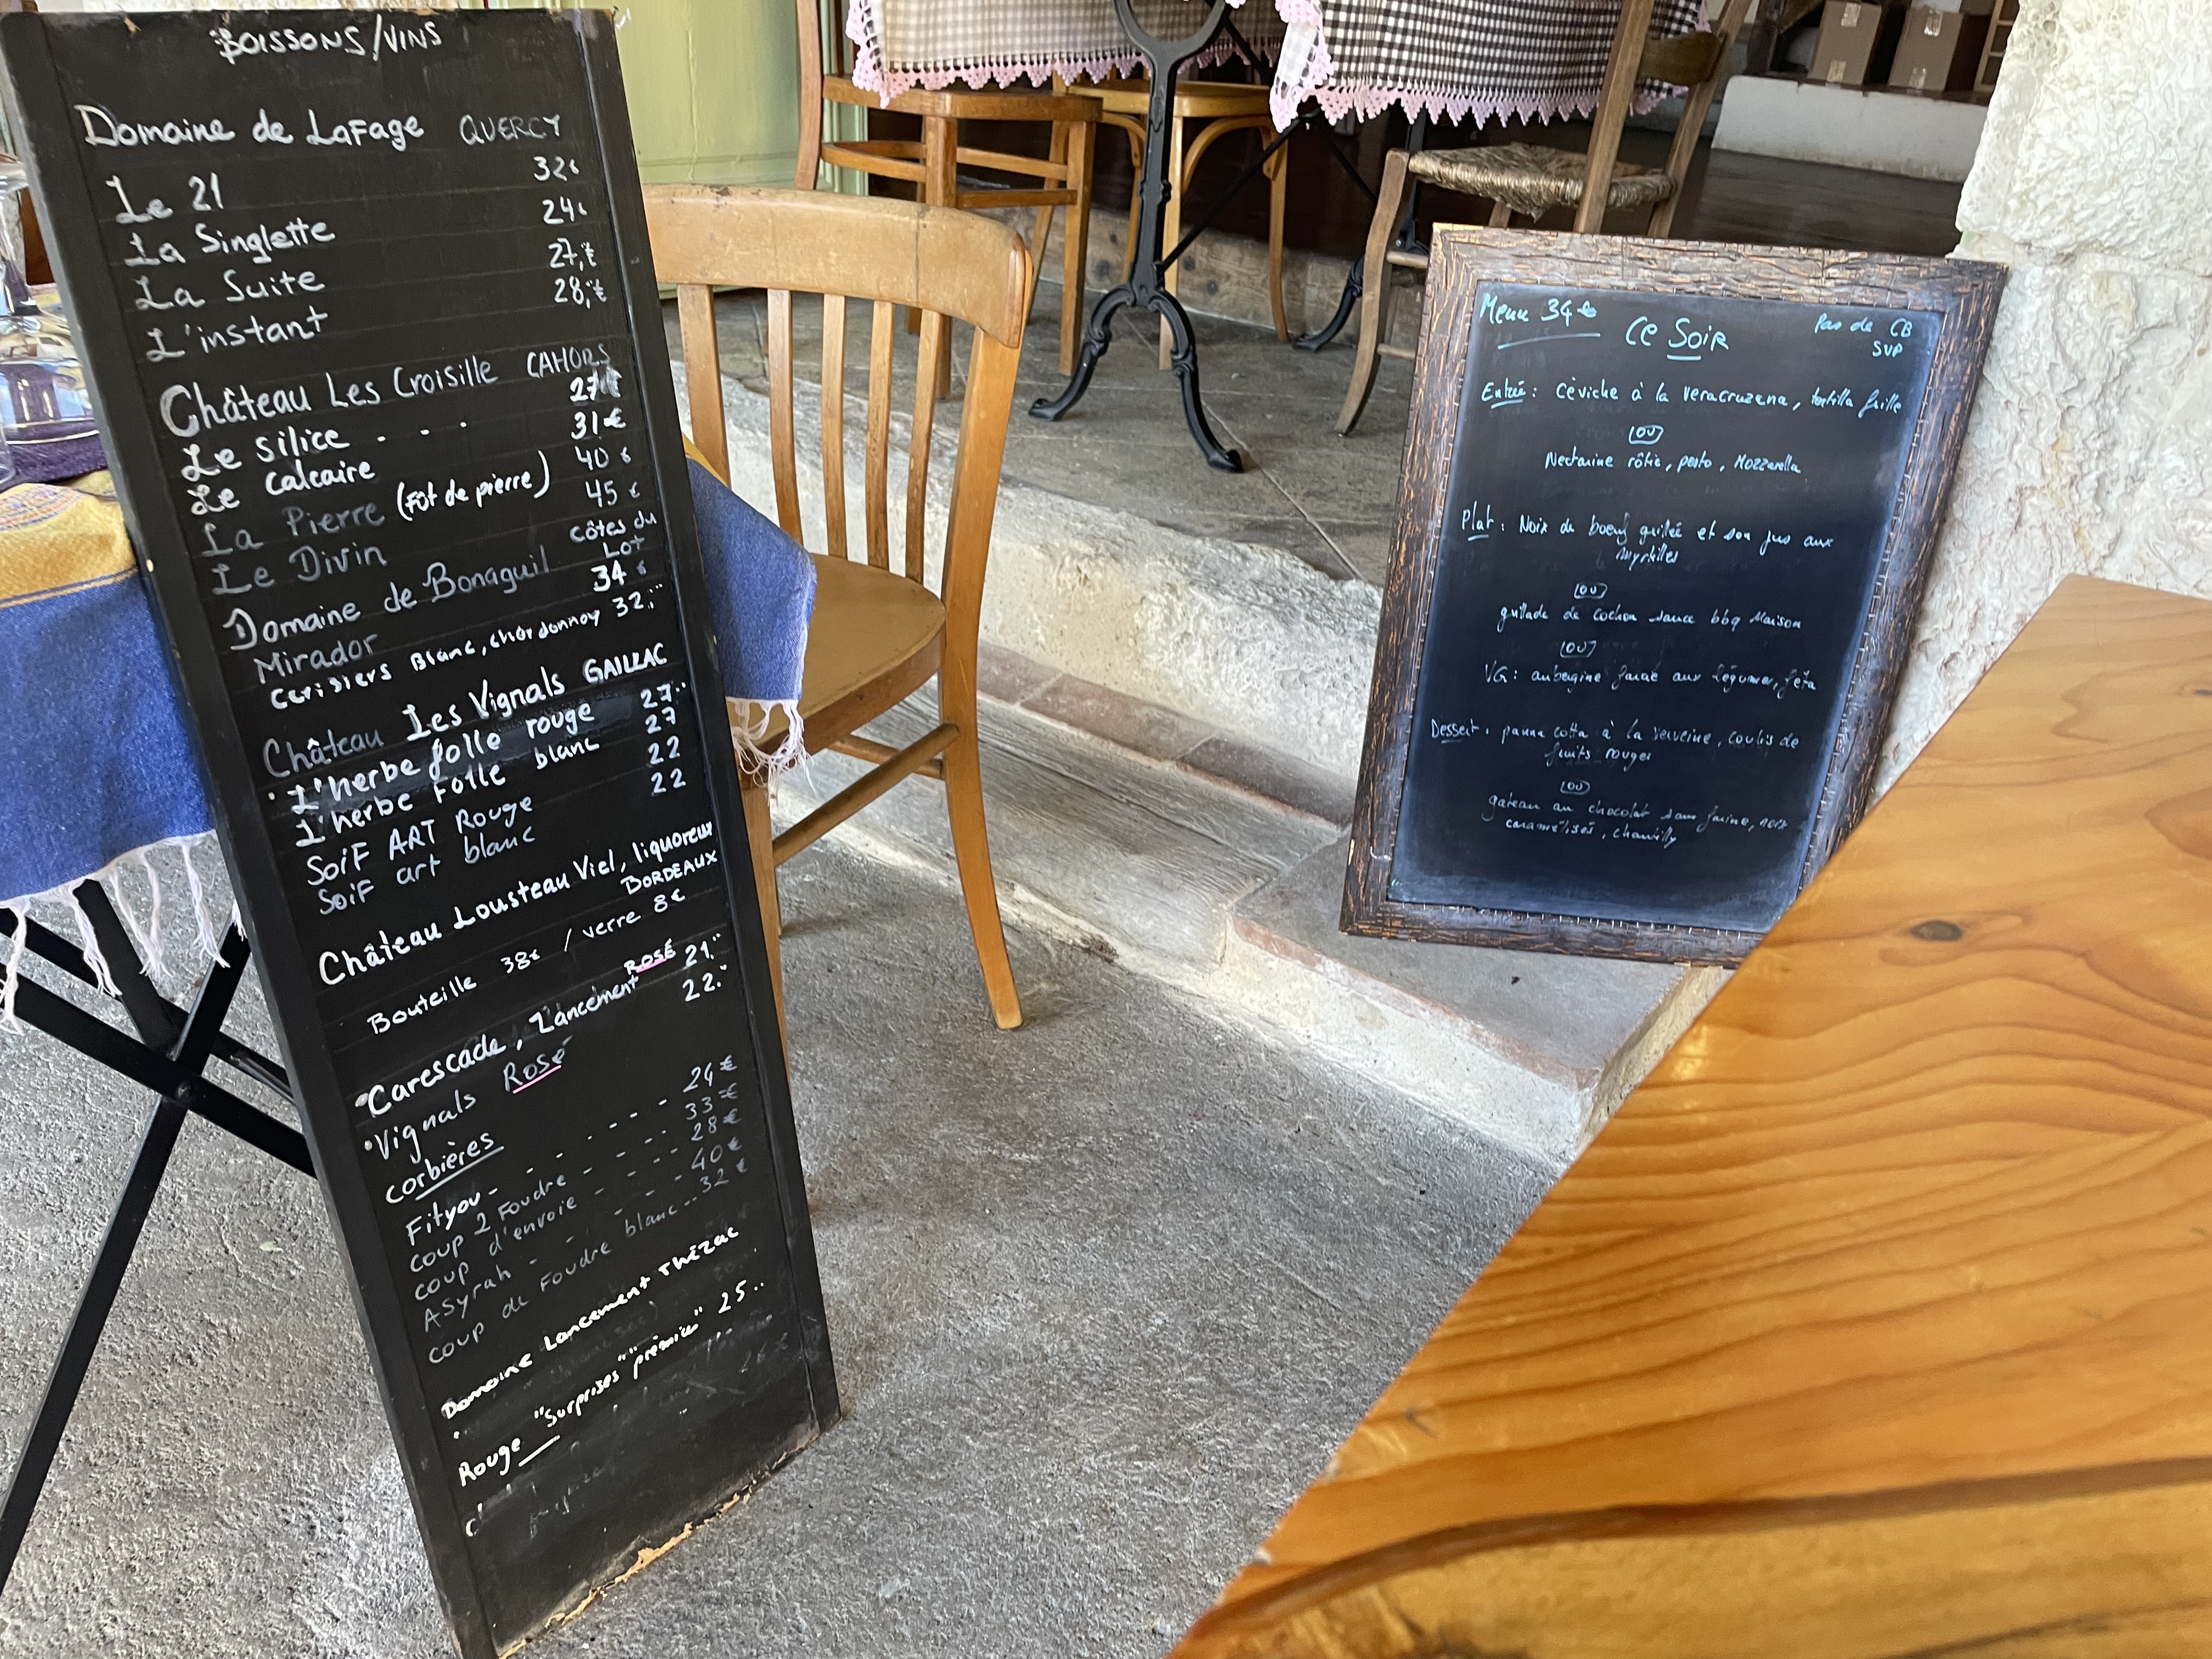 BOISSONS/VINS
Domaine de LaFage QUERCY
Le 21 32€
La Singlette 24€
La Suite 27,€
L'instant 28,€
Château Les Croisille CAHORS
Le silice . . . 27€
Le calcaire 31€
La Pierre (Fût de pierre) 40€
Le Divin 45€
Domaine de Bonaguil côtes du Lot
Mirador 34€
Cerisiers Blanc, chardonnay 32,"
Château Les Vignals GAILLAC
L'herbe folle rouge 27"
L'herbe Folle blanc 27
SoiF ART Rouge 22
SoiF art blanc 22
Château Lousteau Viel, liquoreux
BORDEAUX
Bouteille 38€ / verre 8€
Carescade, Lancement ROSÉ 21."
Vignals Rosé 22."
Corbières
Fityou - - - - - 24€
Coup 2 Foudre - - - 33€
Coup d'envoie - - - 28€
ASyrah - - - 40€
Coup de Foudre blanc..32€
Domaine Lancement Thézac
Rouge "Surprises" "prémice" 25..
Menu 34€
Ce Soir
Pas de CB
SVP
Entrée : céviche à la veracruzana, tortilla grillée
ou
Nectarine rôtie, pesto, Mozzarella
Plat : Noix de boeuf grillée et son jus aux
myrtilles
ou
grillade de cochon sauce bbq Maison
ou
VG : aubergine farcie aux légumes, féta
Dessert : panna cotta à la verveine, coulis de
fruits rouges
ou
gateau au chocolat sans farine, noix
caramélisés, chantilly